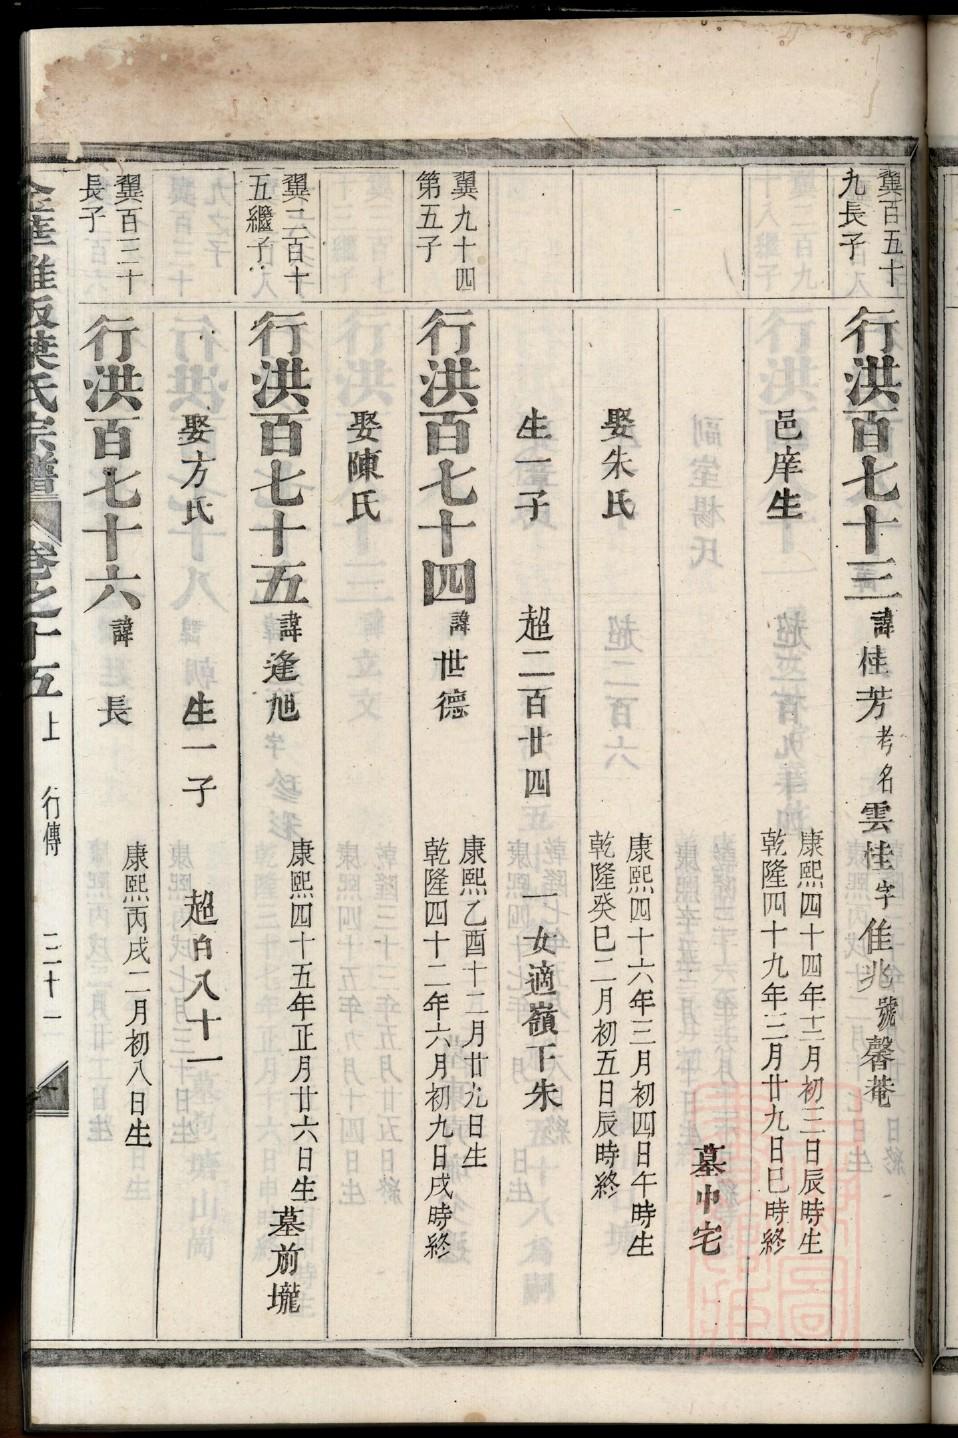 翼百五十
九長子
行洪百七十三 諱桂芳考名雲桂字佳兆號馨菴
邑庠生
康熙四十四年十二月初三日辰時生
乾隆四十九年三月廿九日巳時終
墓中宅
娶朱氏
康熙四十六年三月初四日午時生
乾隆癸巳二月初五日辰時終
生一子 超二百廿四 一女適嶺下朱
翼九十四
第五子
行洪百七十四 諱世德
康熙乙酉十二月廿九日生
乾隆四十二年六月初九日戌時終
娶陳氏
翼二百十
五繼子
行洪百七十五 諱逢旭
康熙四十五年正月廿六日生
墓前壠
娶方氏 生一子 超百八十一
翼百三十
長子
行洪百七十六 諱 長
康熙丙戌二月初八日生
葉氏宗譜 卷之十五上 行傳 三十一